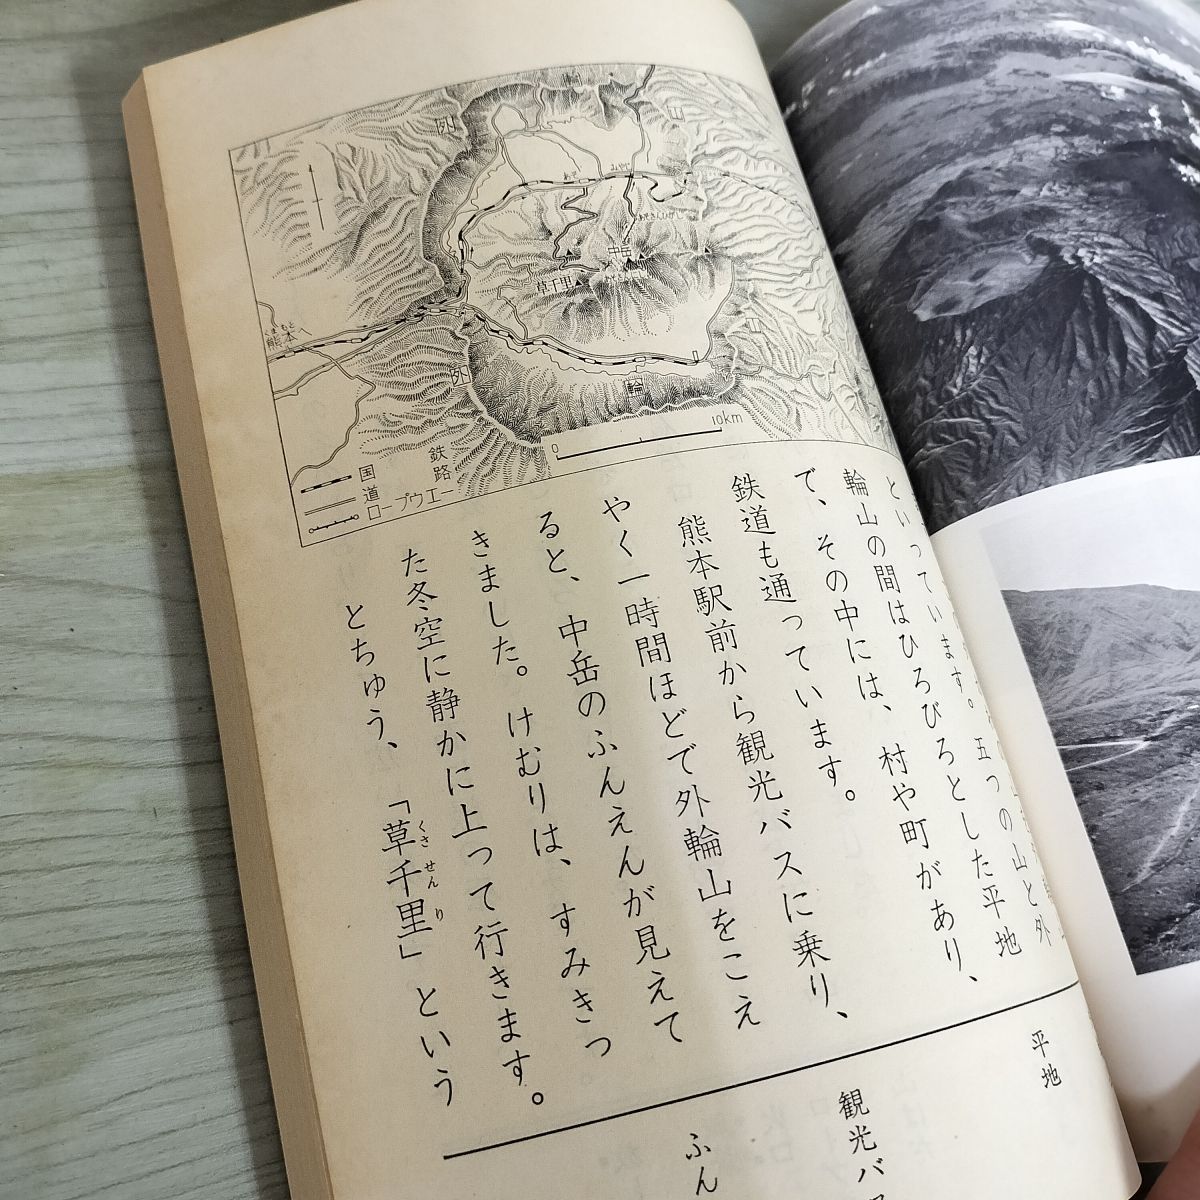 といっています。五つの山と外
輪山の間はひろびろとした平地
で、その中には、村や町があり、
鉄道も通っています。
熊本駅前から観光バスに乗り、
やく一時間ほどで外輪山をこえ
ると、中岳のふんえんが見えて
きました。けむりは、すみきっ
た冬空に静かに上って行きます。
とちゅう、「草千里」という
くさせんり
平地
観光バス
ふん
外
輪
山
外
輪
山
中岳
草千里
みやじ
あそ
くまもと
熊本へ
0
10km
鉄路
国道
ロープウエー